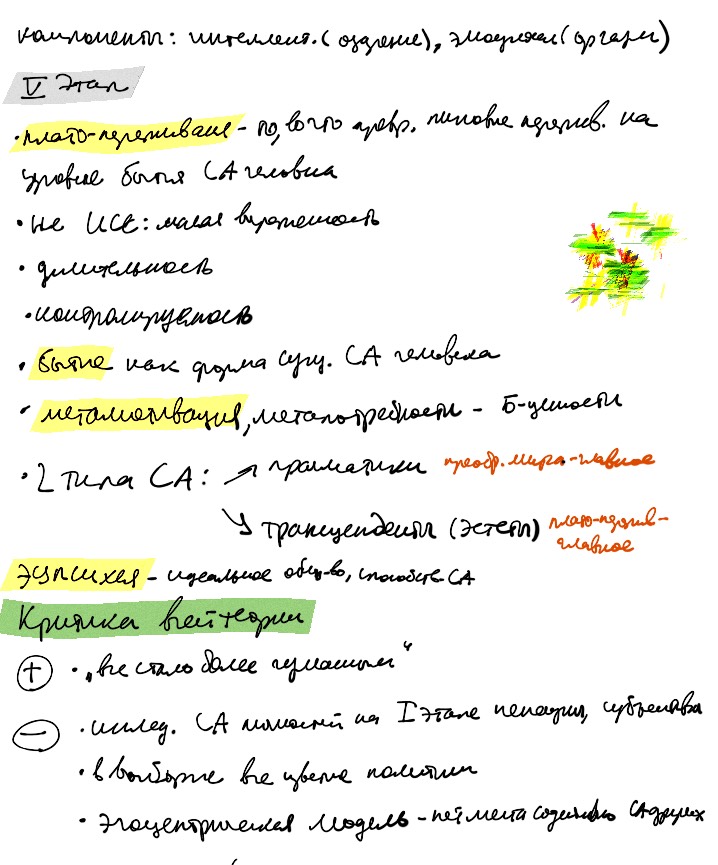 компоненты: интеллект. (озарение), эмоционал (оргазм)
V Этап
• плато-переживания - то, во что превр. пиковые пережив. на
уровне бытия СА человека
• не ИСС: малая выраженность
• длительность
• контролируемость
• бытие как форма сущ. СА человека
• метамотивация, метапотребности - Б-ценности
• 2 типа СА: ↗ прагматики преобр. мира - главное
↘ трансценденты (эстеты) плато-пережив-
главное
Эупсихея - идеальное общ-во, способств. СА
Критика всей теории
+ • „все стало более гуманным“
− • исслед. СА личностей на I этапе ненаучн, субъективн
• в выборке все цветные политики
• эгоцентрическая модель - нет места содействию СА других